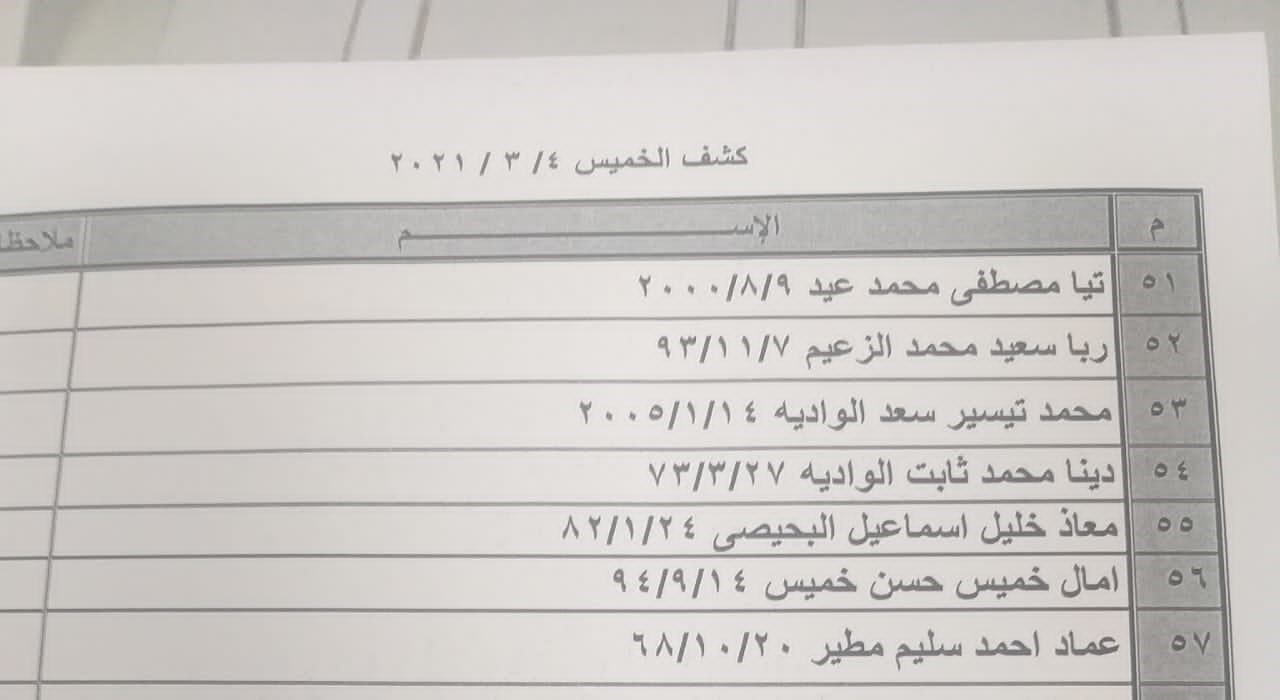 كشف الخميس ٤/ ٣ / ٢٠٢١
م الإســـــــــــــــــــم ملاحظا
٥١ تيا مصطفى محمد عيد ٢٠٠٠/٨/٩
٥٢ ربا سعيد محمد الزعيم ٩٣/١١/٧
٥٣ محمد تيسير سعد الواديه ٢٠٠٥/١/١٤
٥٤ دينا محمد ثابت الواديه ٧٣/٣/٢٧
٥٥ معاذ خليل اسماعيل البحيصى ٨٢/١/٢٤
٥٦ امال خميس حسن خميس ٩٤/٩/١٤
٥٧ عماد احمد سليم مطير ٦٨/١٠/٢٠